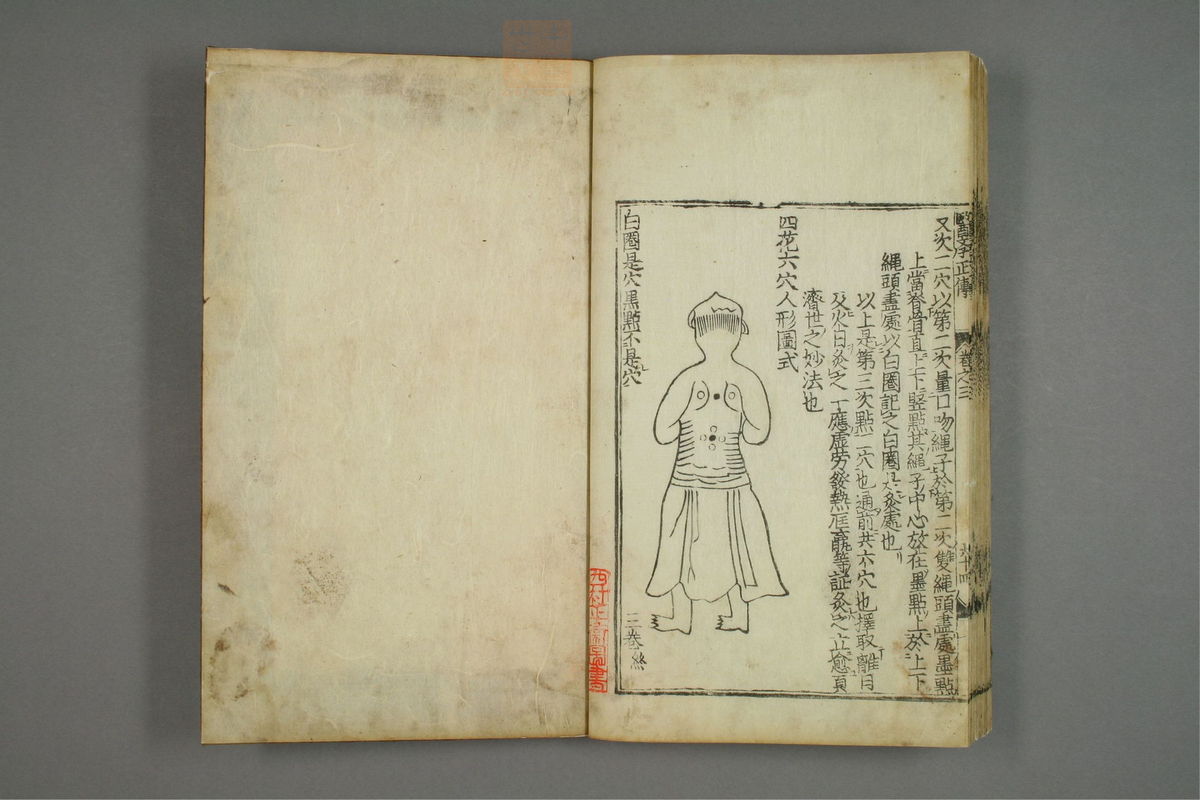 醫學正傳 卷之三
又次二穴以第二次量口吻繩子於第二次雙繩頭盡處墨點
上當脊骨直上下竪點其繩子中心放在墨點上於上下
繩頭盡處以白圈記之白圈是灸處也
以上是第三次點二穴也通前共六穴也擇取離日
及火日灸之一應虛勞發熱尫羸等証灸之立愈真
濟世之妙法也
四花六穴人形圖式
白圈是穴黑點不是穴
三卷終